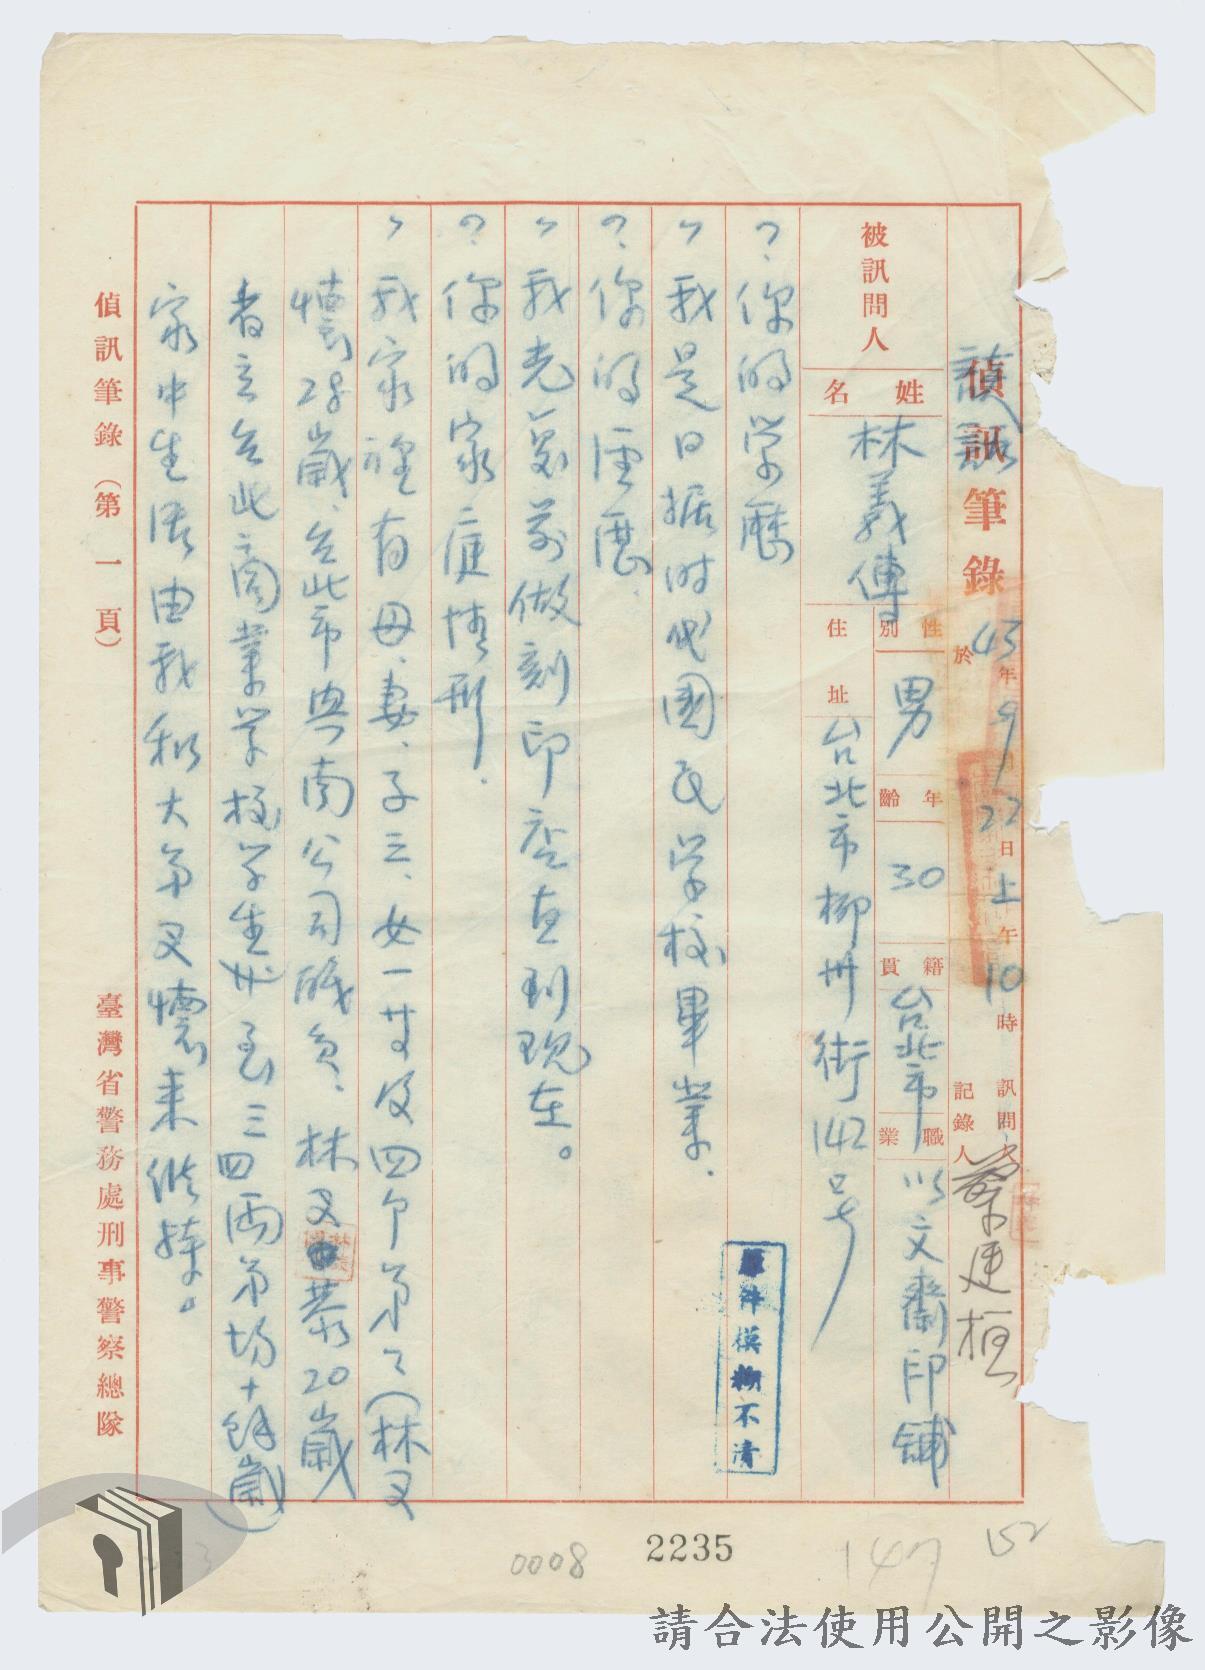 偵訊筆錄
於43年9月22日上午10時 訊問人 記錄人 蔡建桓
被訊問人
姓名 林義傳
性別 男 年齡 30 籍貫 台北市 職業 以文齋印舖
住址 台北市柳州街142号
?你的学歷
、我是日据时代國民学校畢業、
?你的經歷、
、我光复前做刻印店直到現在。
?你的家庭情形、
、我家裡有母、妻、子三、女一廿及四个弟々(林又
懷28歲、台北市興南公司職員、林又恭20歲
省立台北商業学校学生
三四両弟均十餘歲)
家中生活由我和大弟又懷來維持。
原件模糊不清
偵訊筆錄(第一頁)
臺灣省警務處刑事警察總隊
0008
2235
147
152
請合法使用公開之影像